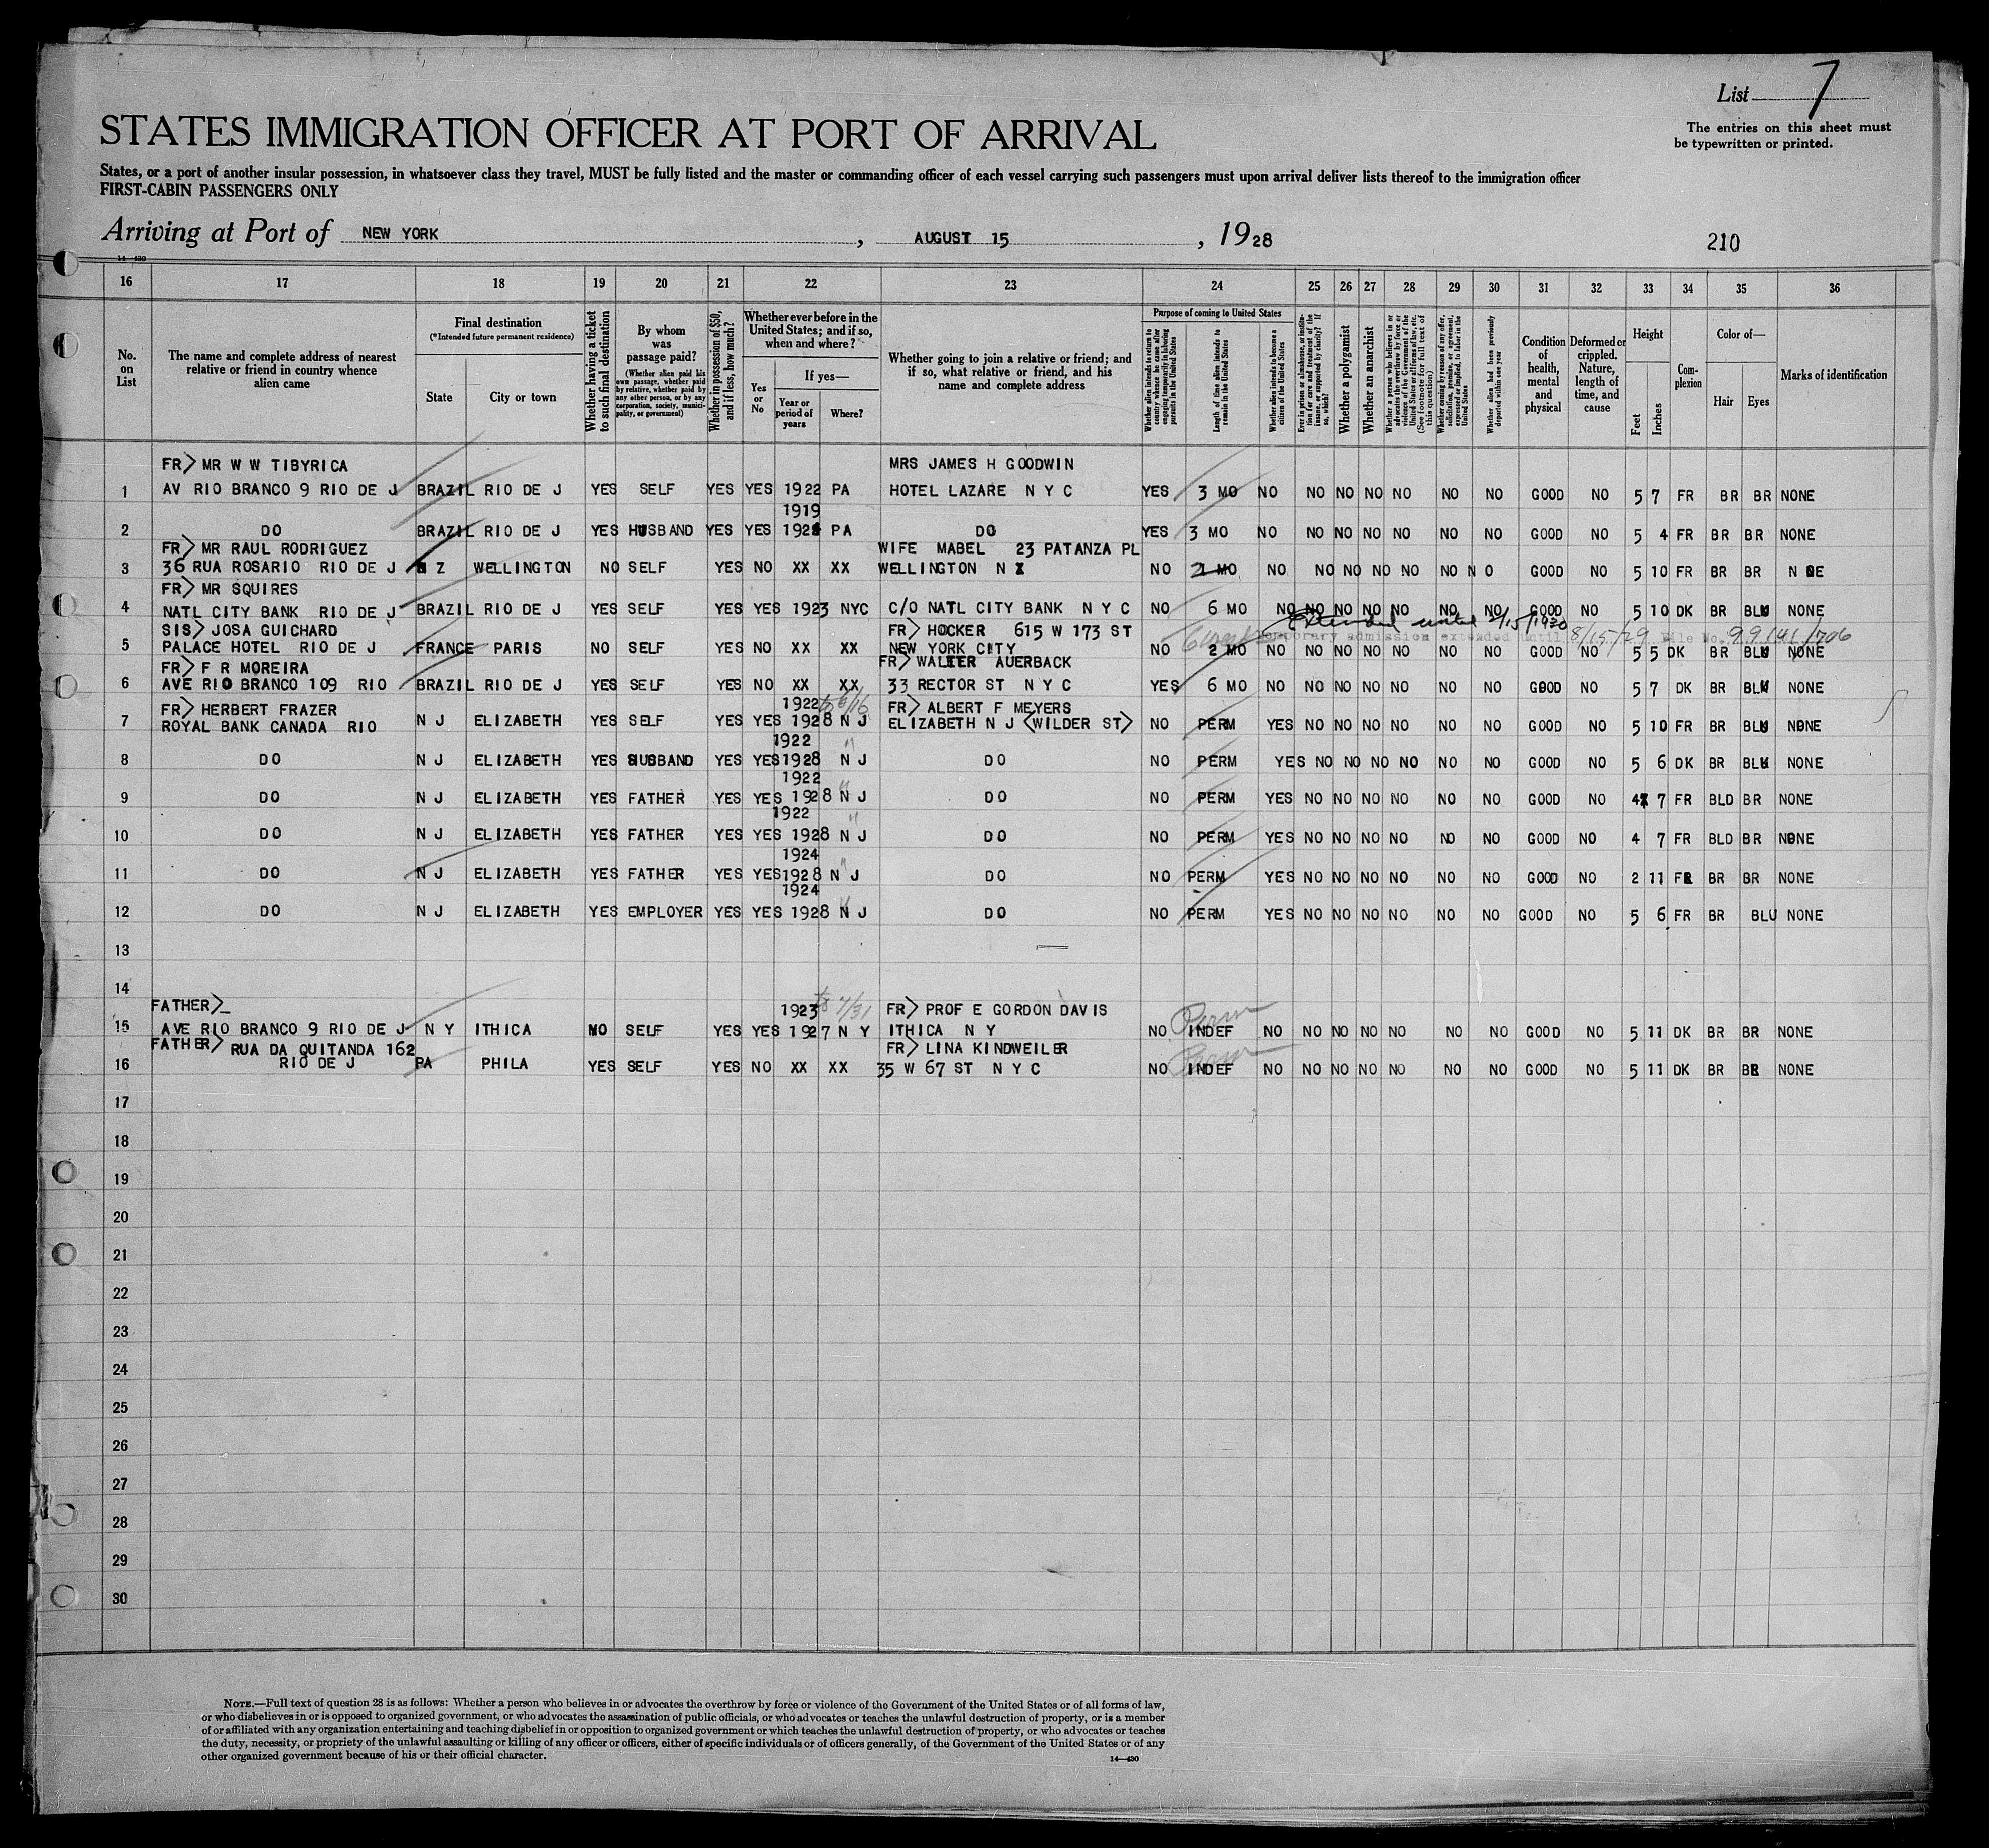 List 7
The entries on this sheet must
be typewritten or printed.
STATES IMMIGRATION OFFICER AT PORT OF ARRIVAL
States, or a port of another insular possession, in whatsoever class they travel, MUST be fully listed and the master or commanding officer of each vessel carrying such passengers must upon arrival deliver lists thereof to the immigration officer
FIRST-CABIN PASSENGERS ONLY
Arriving at Port of NEW YORK, AUGUST 15, 1928
210
14—430
16 17 18 19 20 21 22 23 24 25 26 27 28 29 30 31 32 33 34 35 36
No. on List
The name and complete address of nearest relative or friend in country whence alien came
Final destination (*Intended future permanent residence)
State
City or town
Whether having a ticket to such final destination
By whom was passage paid? (Whether alien paid his own passage, whether paid by relative, whether paid by any other person, or by any corporation, society, municipality, or government)
Whether in possession of $50, and if less, how much?
Whether ever before in the United States; and if so, when and where?
Yes or No
If yes—
Year or period of years
Where?
Whether going to join a relative or friend; and if so, what relative or friend, and his name and complete address
Purpose of coming to United States
Whether alien intends to return to country whence he came after engaging temporarily in laboring pursuits in the United States
Length of time alien intends to remain in the United States
Whether alien intends to become a citizen of the United States
Ever in prison or almshouse, or institution for care and treatment of the insane, or supported by charity? If so, which?
Whether a polygamist
Whether an anarchist
Whether a person who believes in or advocates the overthrow by force or violence of the Government of the United States or all forms of law, etc. (See footnote for full text of this question)
Whether coming by reason of any offer, solicitation, promise, or agreement, expressed or implied, to labor in the United States
Whether alien had been previously deported within one year
Condition of health, mental and physical
Deformed or crippled. Nature, length of time, and cause
Height
Feet
Inches
Complexion
Color of—
Hair
Eyes
Marks of identification
FR> MR W W TIBYRICA MRS JAMES H GOODWIN
1 AV RIO BRANCO 9 RIO DE J BRAZIL RIO DE J YES SELF YES YES 1922 PA HOTEL LAZARE N Y C YES 3 MO NO NO NO NO NO NO NO GOOD NO 5 7 FR BR BR NONE
1919
2 DO BRAZIL RIO DE J YES HUSBAND YES YES PA DO YES 3 MO NO NO NO NO NO NO NO GOOD NO 5 4 FR BR BR NONE
FR> MR RAUL RODRIGUEZ WIFE MABEL 23 PATANZA PL
3 36 RUA ROSARIO RIO DE J N Z WELLINGTON NO SELF YES NO XX XX WELLINGTON N Z NO MO NO NO NO NO NO NO NO GOOD NO 5 10 FR BR BR N NE
FR> MR SQUIRES
4 NATL CITY BANK RIO DE J BRAZIL RIO DE J YES SELF YES YES 1923 NYC C/O NATL CITY BANK N Y C NO 6 MO NO NO NO NO NO NO NO GOOD NO 5 10 DK BR BLU NONE
Extended until 2/15/1930
SIS> JOSA GUICHARD FR> HOCKER 615 W 173 ST
Temporary admission extended until 8/15/29 File No. 99141/706
5 PALACE HOTEL RIO DE J FRANCE PARIS NO SELF YES NO XX XX NEW YORK CITY NO 2 MO NO NO NO NO NO NO NO GOOD NO 5 5 DK BR BLU NONE
FR> F R MOREIRA FR> WALTER AUERBACK
6 AVE RIO BRANCO 109 RIO BRAZIL RIO DE J YES SELF YES NO XX XX 33 RECTOR ST N Y C YES 6 MO NO NO NO NO NO NO NO GOOD NO 5 7 DK BR BLU NONE
FR> HERBERT FRAZER 1922 to 6/16 FR> ALBERT F MEYERS
7 ROYAL BANK CANADA RIO N J ELIZABETH YES SELF YES YES 1928 N J ELIZABETH N J <WILDER ST> NO PERM YES NO NO NO NO NO NO GOOD NO 5 10 FR BR BLU NONE
1922 "
8 DO N J ELIZABETH YES HUSBAND YES YES 1928 N J DO NO PERM YES NO NO NO NO NO NO GOOD NO 5 6 DK BR BLU NONE
1922 "
9 DO N J ELIZABETH YES FATHER YES YES 1928 N J DO NO PERM YES NO NO NO NO NO NO GOOD NO 4 7 FR BLD BR NONE
1922 "
10 DO N J ELIZABETH YES FATHER YES YES 1928 N J DO NO PERM YES NO NO NO NO NO NO GOOD NO 4 7 FR BLD BR NONE
1924 "
11 DO N J ELIZABETH YES FATHER YES YES 1928 N J DO NO PERM YES NO NO NO NO NO NO GOOD NO 2 11 FR BR BR NONE
1924 "
12 DO N J ELIZABETH YES EMPLOYER YES YES 1928 N J DO NO PERM YES NO NO NO NO NO NO GOOD NO 5 6 FR BR BLU NONE
13
14
FATHER> 1923 to 7/31 FR> PROF E GORDON DAVIS Perm
15 AVE RIO BRANCO 9 RIO DE J N Y ITHICA NO SELF YES YES 1927 N Y ITHICA N Y NO INDEF NO NO NO NO NO NO NO GOOD NO 5 11 DK BR BR NONE
FATHER> RUA DA QUITANDA 162 FR> LINA KINDWEILER Perm
16 RIO DE J PA PHILA YES SELF YES NO XX XX 35 W 67 ST N Y C NO INDEF NO NO NO NO NO NO NO GOOD NO 5 11 DK BR BR NONE
17
18
19
20
21
22
23
24
25
26
27
28
29
30
NOTE.—Full text of question 28 is as follows: Whether a person who believes in or advocates the overthrow by force or violence of the Government of the United States or of all forms of law,
or who disbelieves in or is opposed to organized government, or who advocates the assassination of public officials, or who advocates or teaches the unlawful destruction of property, or is a member
of or affiliated with any organization entertaining and teaching disbelief in or opposition to organized government or which teaches the unlawful destruction of property, or who advocates or teaches
the duty, necessity, or propriety of the unlawful assaulting or killing of any officer or officers, either of specific individuals or of officers generally, of the Government of the United States or of any
other organized government because of his or their official character.
14—430